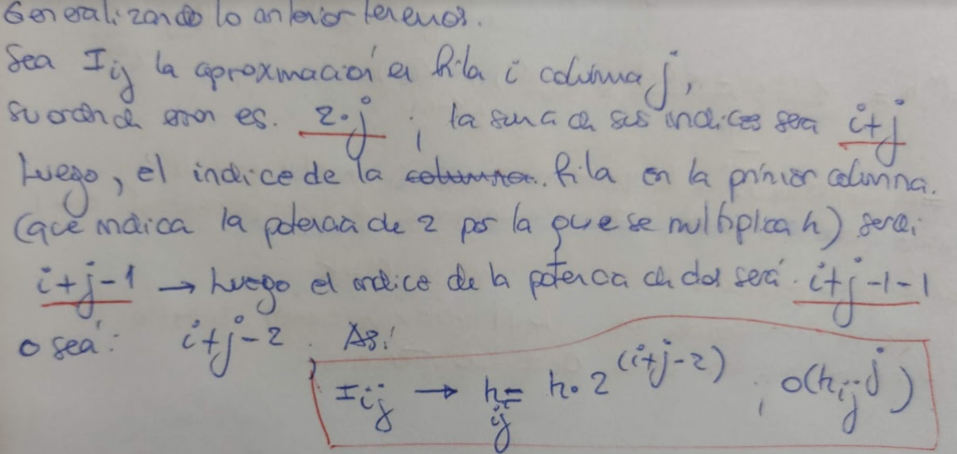 Generalizando lo anterior tenemos.
Sea Iij la aproxmación en fila i columna j,
su orden de error es. 2·j ; la suma de sus indices sera i+j
Luego, el indice de la columna. fila en la primer columna.
(que indica la potencia de 2 por la que se multiplica h) sera:
i+j-1 → Luego el indice de la potencia de dos será i+j-1-1
o sea: i+j-2. Así
Iij → hij = h·2^(i+j-2) ; O(hij^j)